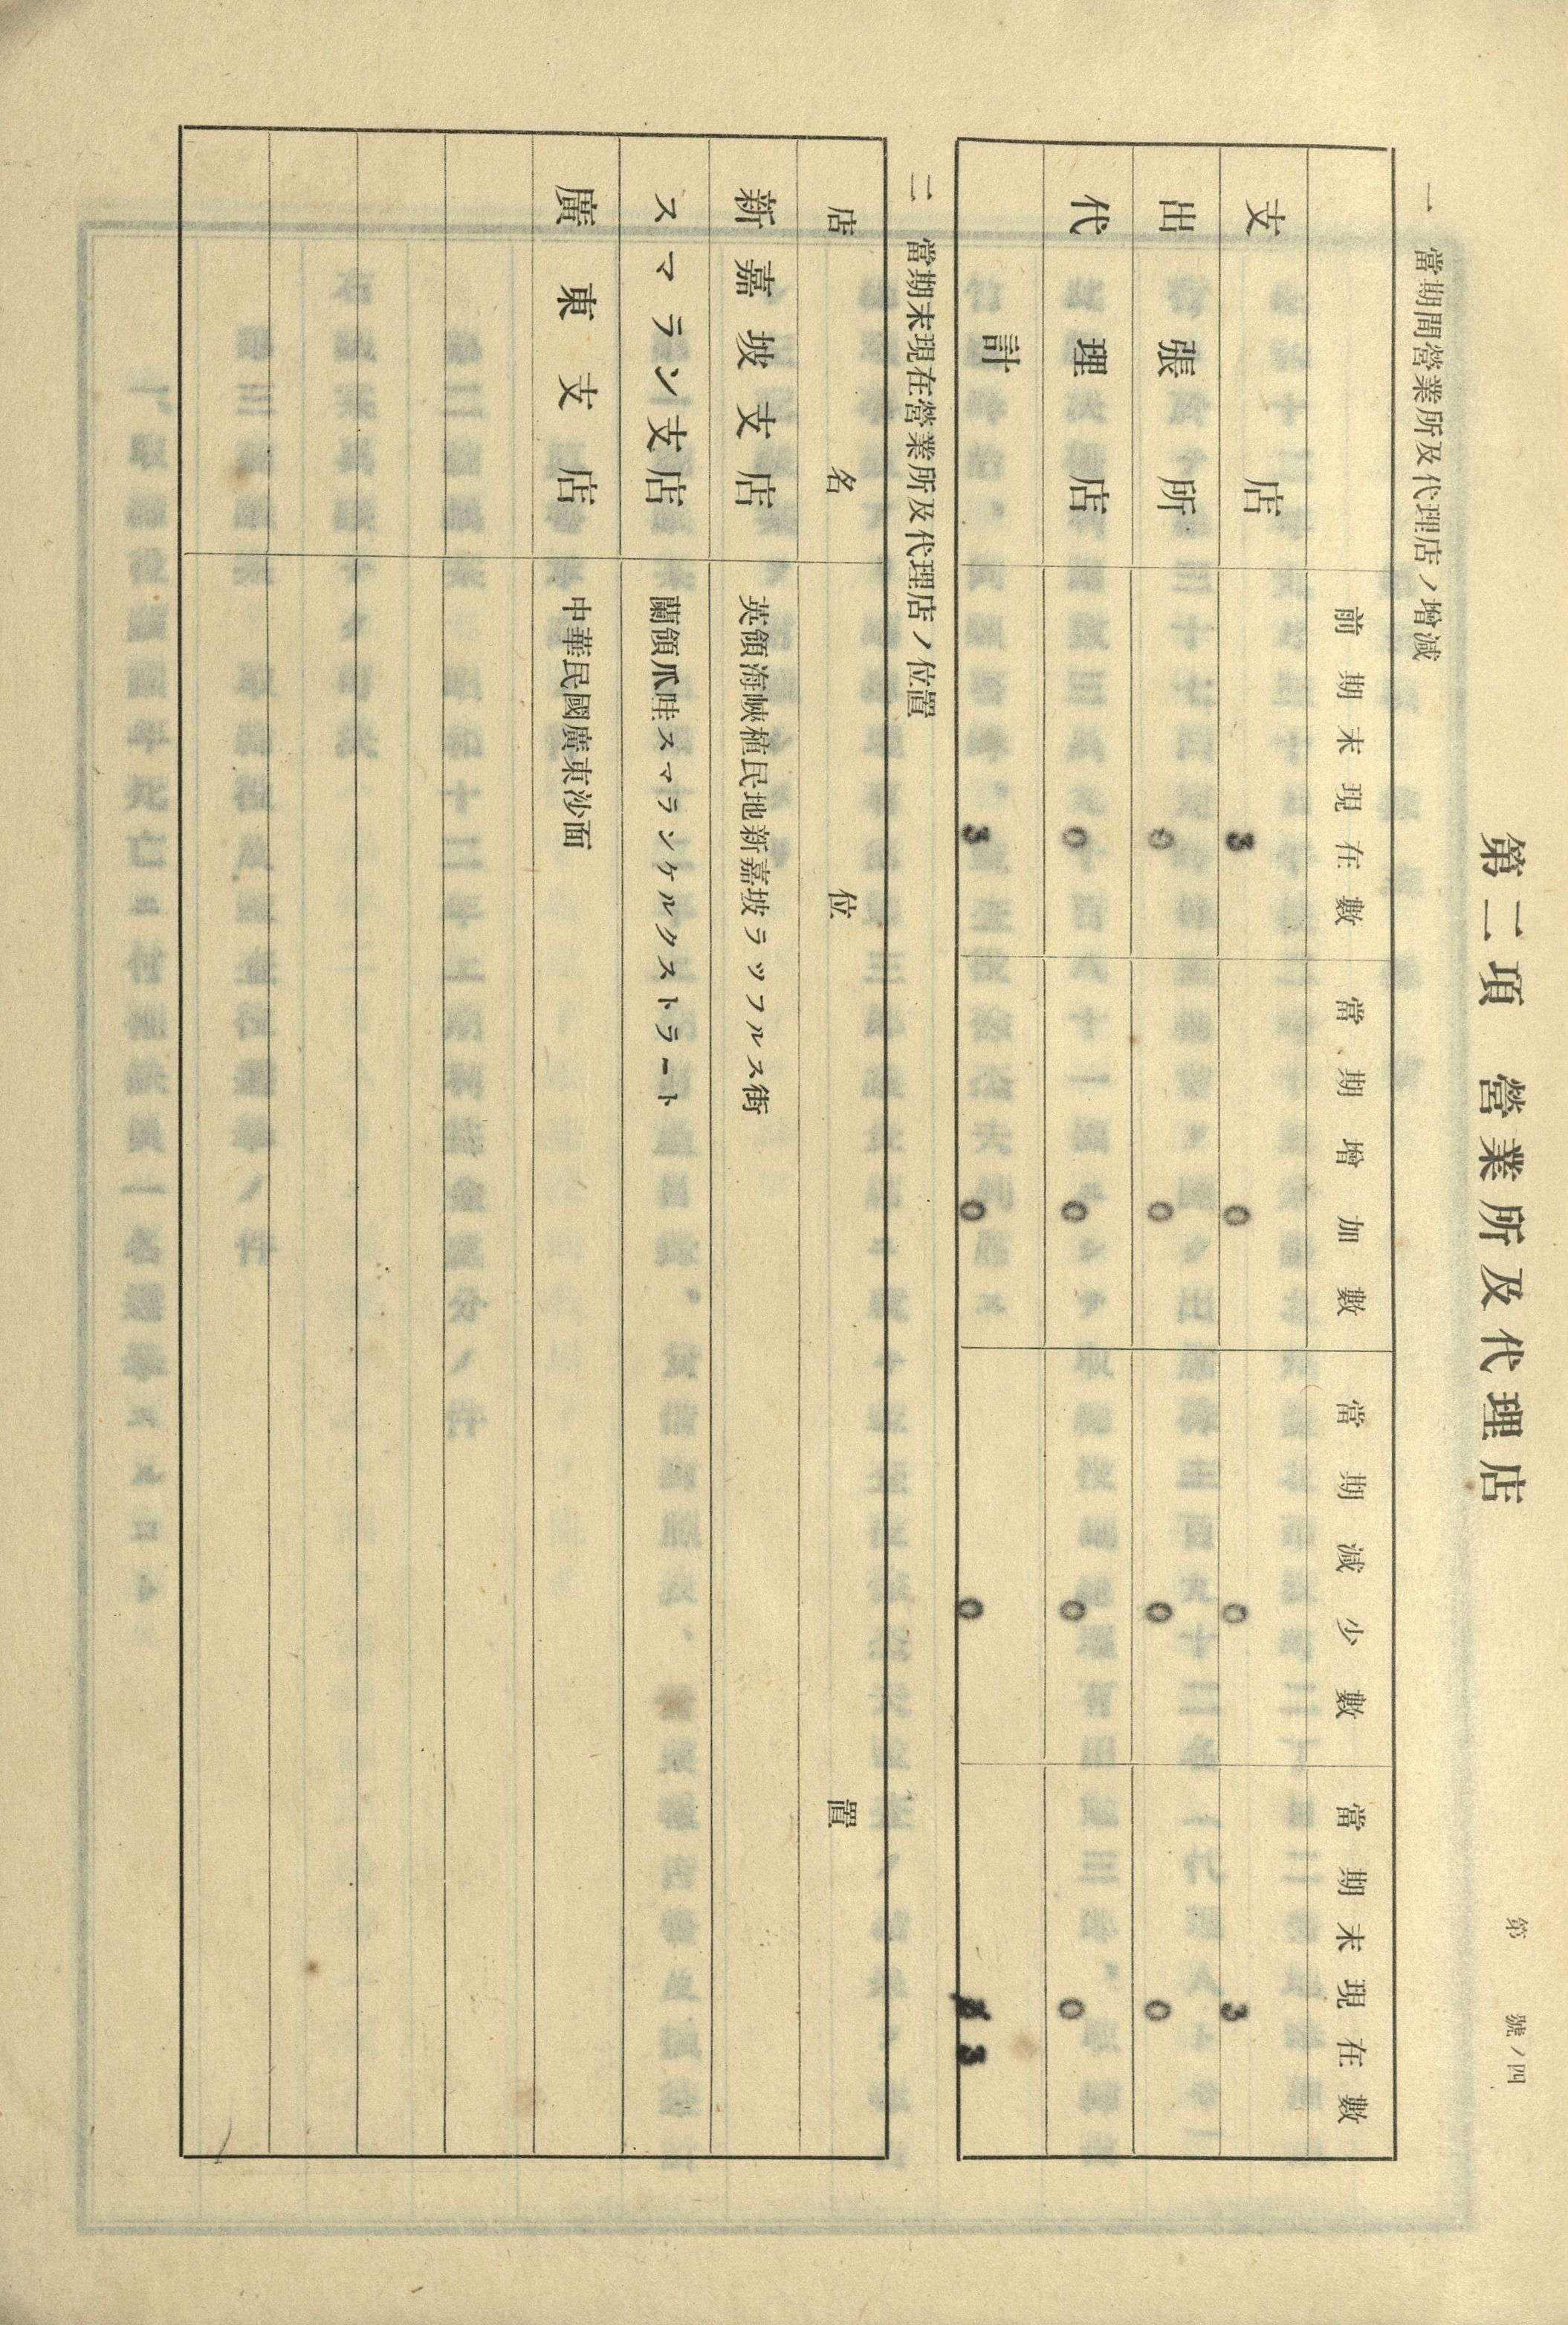 第　號ノ四
第二項　營業所及代理店
一　當期間營業所及代理店ノ增減
前期末現在數　當期增加數　當期減少數　當期末現在數
支店　3　0　0　3
出張所　0　0　0　0
代理店　0　0　0　0
計　3　0　0　3
二　當期末現在營業所及代理店ノ位置
店名　位置
新嘉坡支店　英領海峽植民地新嘉坡ラッフルス街
スマラン支店　蘭領爪哇スマランケルクストラート
廣東支店　中華民國廣東沙面